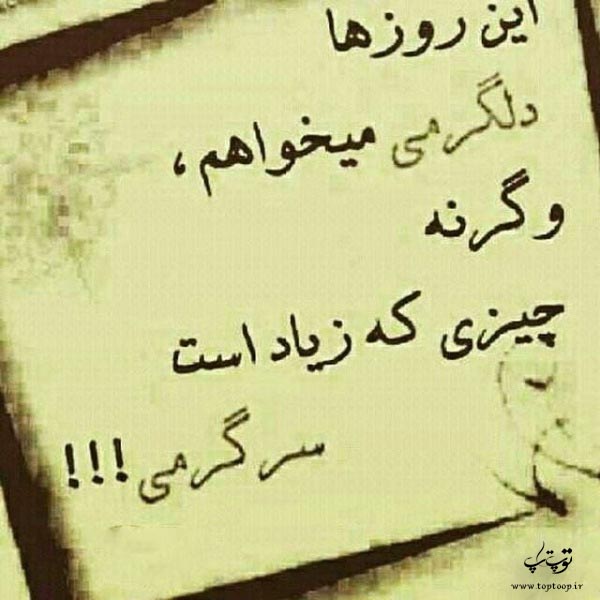 این روزها
دلگرمی میخواهم ،
وگرنه
چیزی که زیاد است
سرگرمی!!!
توپتاپ
www.toptoop.ir